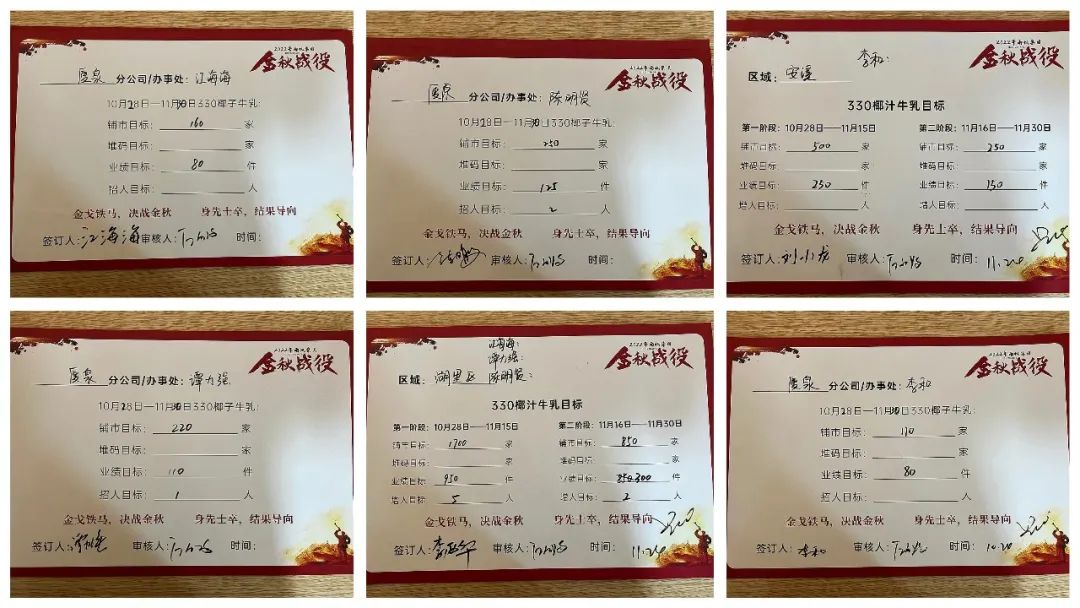 金秋战役
厦泉 分公司/办事处: 江海海
10月28日—11月10日330椰子牛乳:
铺市目标: 160 家
堆码目标: 家
业绩目标: 80 件
招人目标: 人
金戈铁马，决战金秋 身先士卒，结果导向
签订人: 江海海 审核人: 时间:
金秋战役
厦泉 分公司/办事处: 陈明贤
10月28日—11月10日330椰子牛乳:
铺市目标: 250 家
堆码目标: 家
业绩目标: 125 件
招人目标: 2 人
金戈铁马，决战金秋 身先士卒，结果导向
签订人: 审核人: 时间:
金秋战役
李和:
区域: 安溪
330椰汁牛乳目标
第一阶段: 10月28日——11月15日 第二阶段: 11月16日——11月30日
铺市目标: 500 家 铺市目标: 250 家
堆码目标: 家 堆码目标: 家
业绩目标: 250 件 业绩目标: 150 件
增人目标: 人 增人目标: 人
金戈铁马，决战金秋 身先士卒，结果导向
签订人: 刘小龙 审核人: 时间: 11.20
金秋战役
厦泉 分公司/办事处: 谭力强
10月28日—11月10日330椰子牛乳:
铺市目标: 220 家
堆码目标: 家
业绩目标: 110 件
招人目标: 1 人
金戈铁马，决战金秋 身先士卒，结果导向
签订人: 审核人: 时间:
金秋战役
江海海:
谭力强:
区域: 湖里区 陈明贤:
330椰汁牛乳目标
第一阶段: 10月28日——11月15日 第二阶段: 11月16日——11月30日
铺市目标: 1700 家 铺市目标: 850 家
堆码目标: 家 堆码目标: 家
业绩目标: 950 件 业绩目标: 件
增人目标: 5 人 增人目标: 2 人
金戈铁马，决战金秋 身先士卒，结果导向
签订人: 审核人: 时间: 11.20
金秋战役
厦泉 分公司/办事处: 李和
10月28日—11月10日330椰子牛乳:
铺市目标: 110 家
堆码目标: 家
业绩目标: 80 件
招人目标: 人
金戈铁马，决战金秋 身先士卒，结果导向
签订人: 李和 审核人: 时间: 10.20